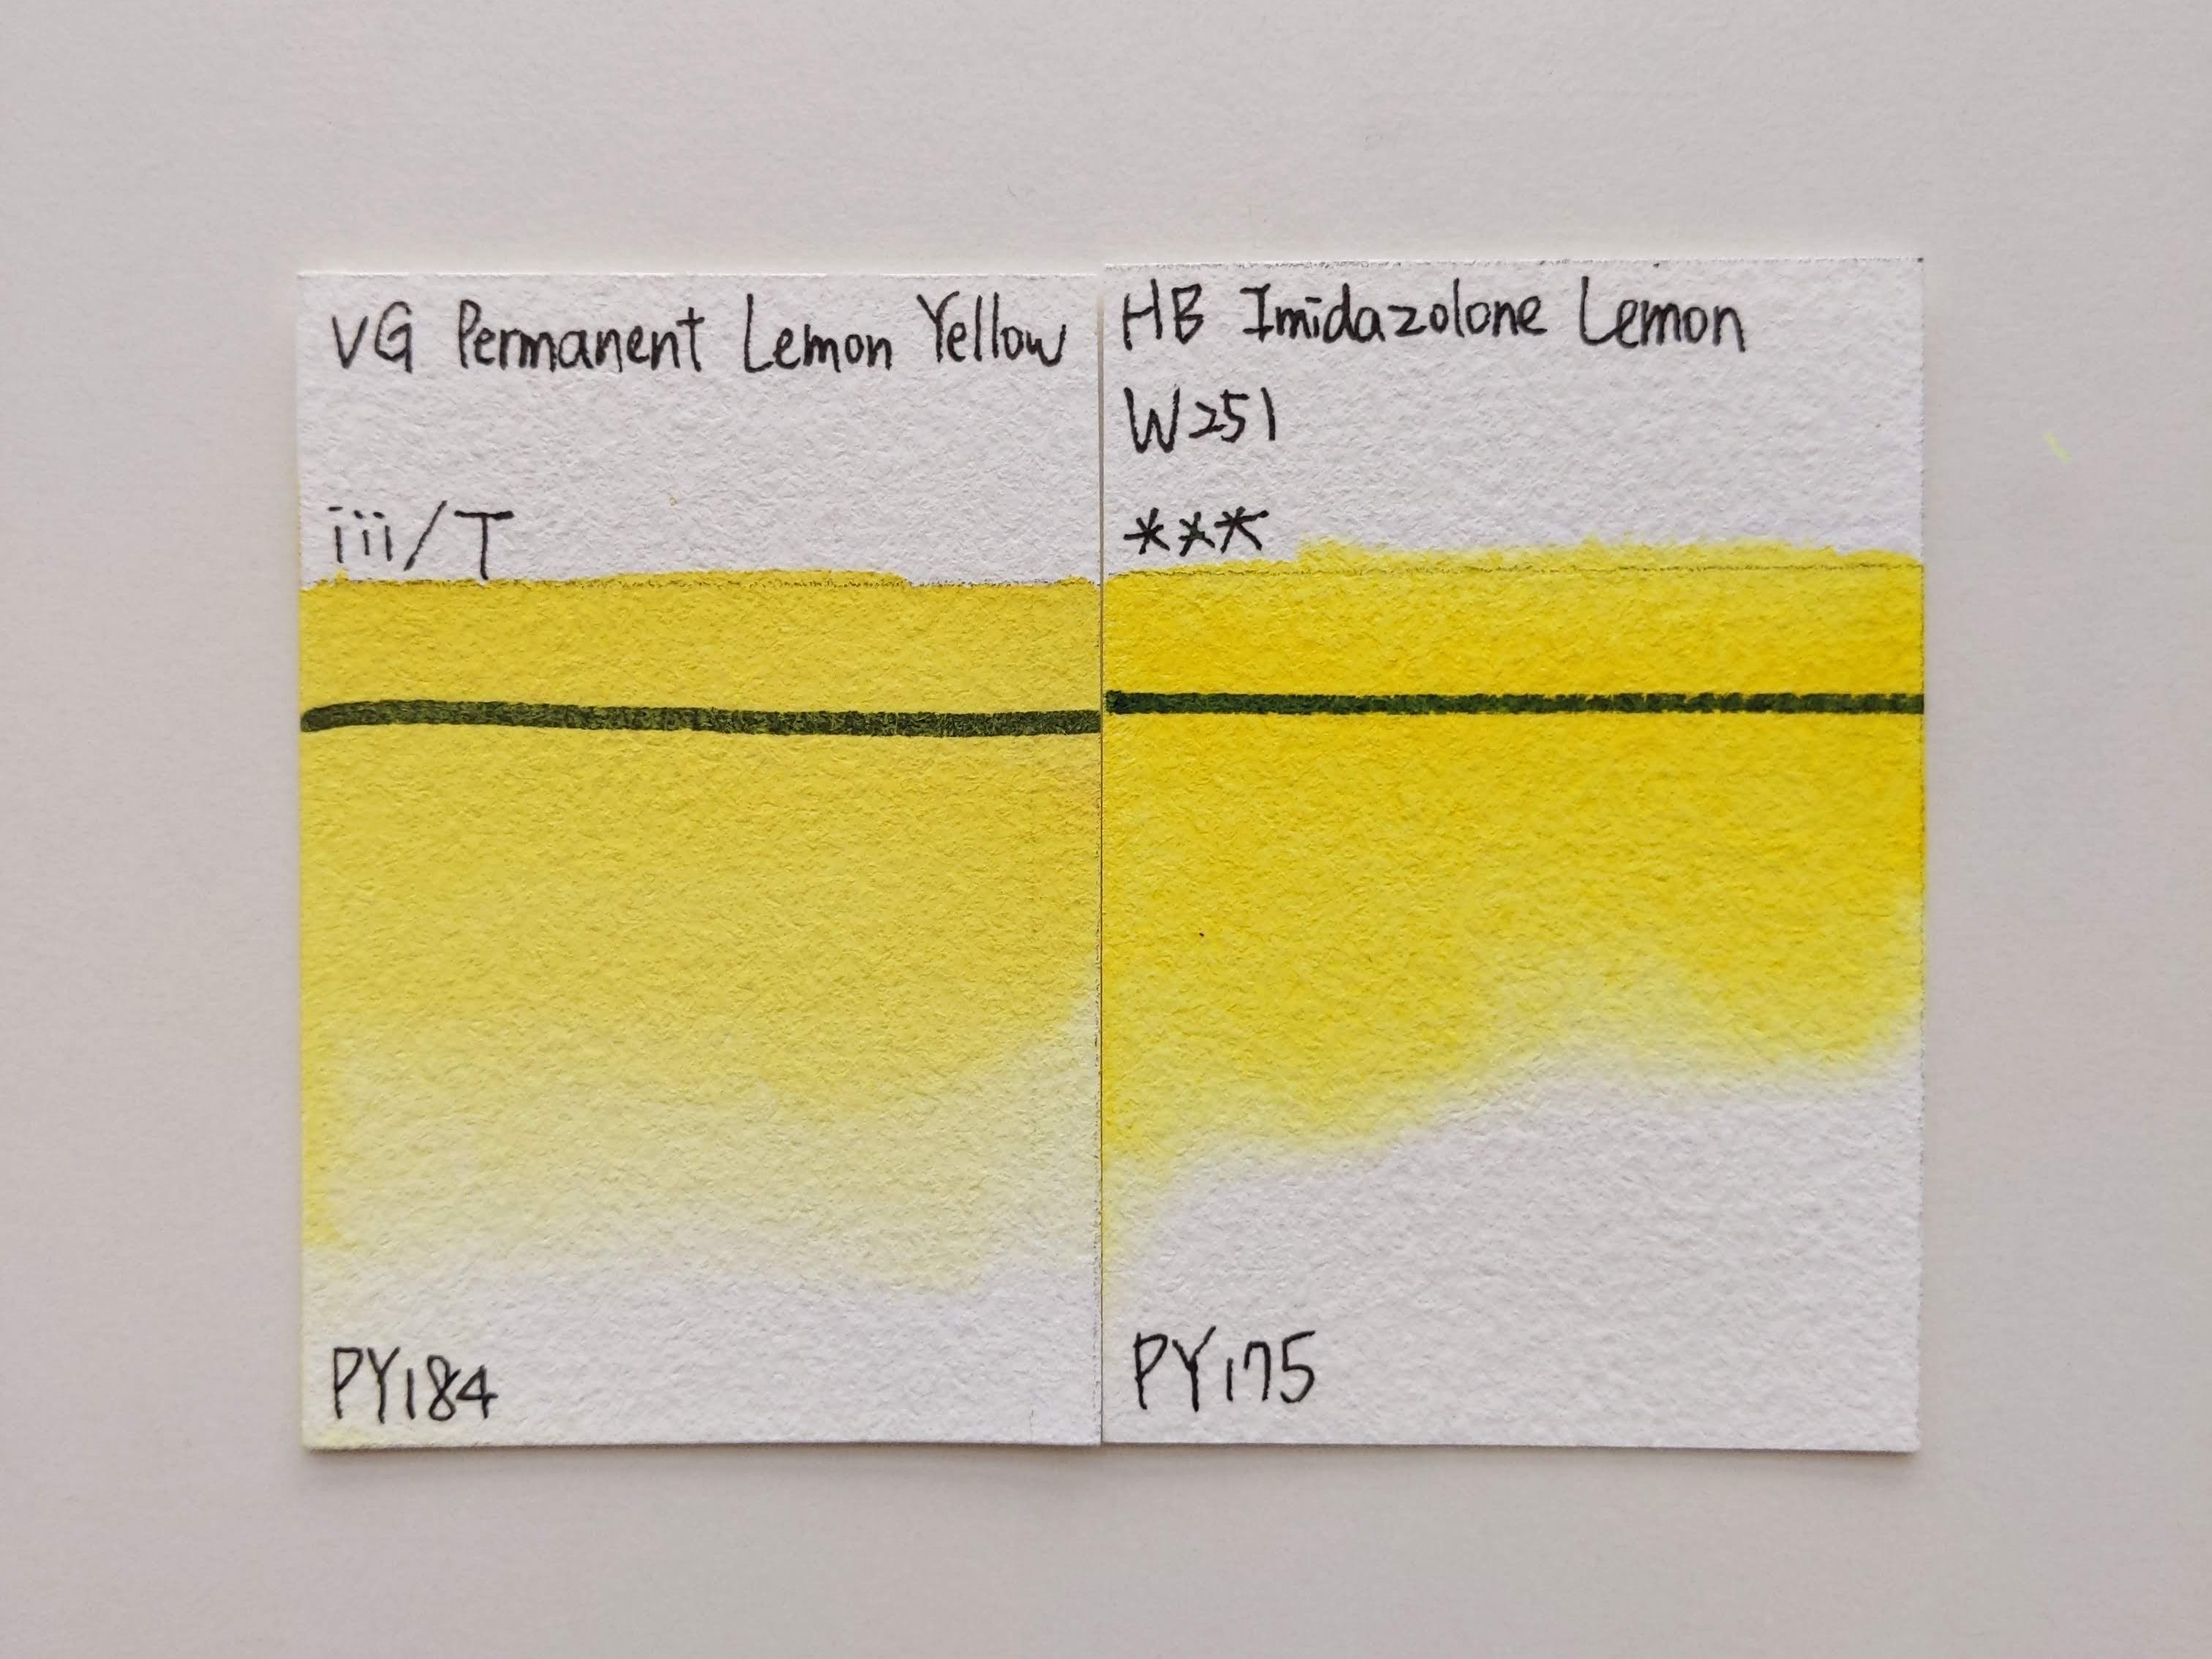 VG Permanent Lemon Yellow
iii/T
PY184
HB Imidazolone Lemon
W251
***
PY175